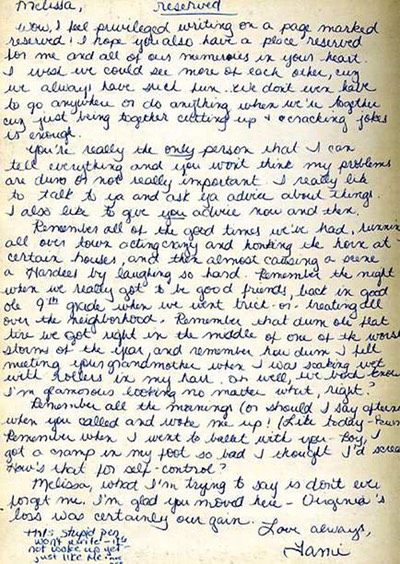 Melissa, reserved
Wow, I feel privileged writing on a page marked
reserved! I hope you also have a place reserved
for me and all of our memories in your heart.
I wish we could see more of each other, cuz
we always have such fun. We don't even have
to go anywhere or do anything when we're together
cuz just being together cutting up + cracking jokes
is enough.
You're really the only person that I can
tell everything and you won't think my problems
are dum or not really important. I really like
to talk to ya and ask ya advice about things.
I also like to give you advice now and then.
Remember all of the good times we've had, running
all over town acting crazy and honking the horn at
certain houses, and then almost causing a scene
a Hardees by laughing so hard. Remember the night
when we really got to be good friends, back in good
ole 9th grade when we went trick-or-treating all
over the neighborhood. Remember that dum ole flat
tire we got right in the middle of one of the worst
storms of the year, and remember how dum I felt
meeting your grandmother when I was soaking wet
with rollers in my hair. Oh well, we both know
I'm glamorous looking no matter what, right?
Remember all the mornings (or should I say afternoons
when you called and woke me up! (Like today -
Remember when I went to ballet with you - Boy, I
got a cramp in my foot so bad I thought I'd scream
How's that for self-control?
Melissa, what I'm trying to say is don't ever
forget me. I'm glad you moved here - Virginia's
loss was certainly our gain.
Love always,
Tami
This stupid pen
won't write - it's
not woke up yet
just like me.